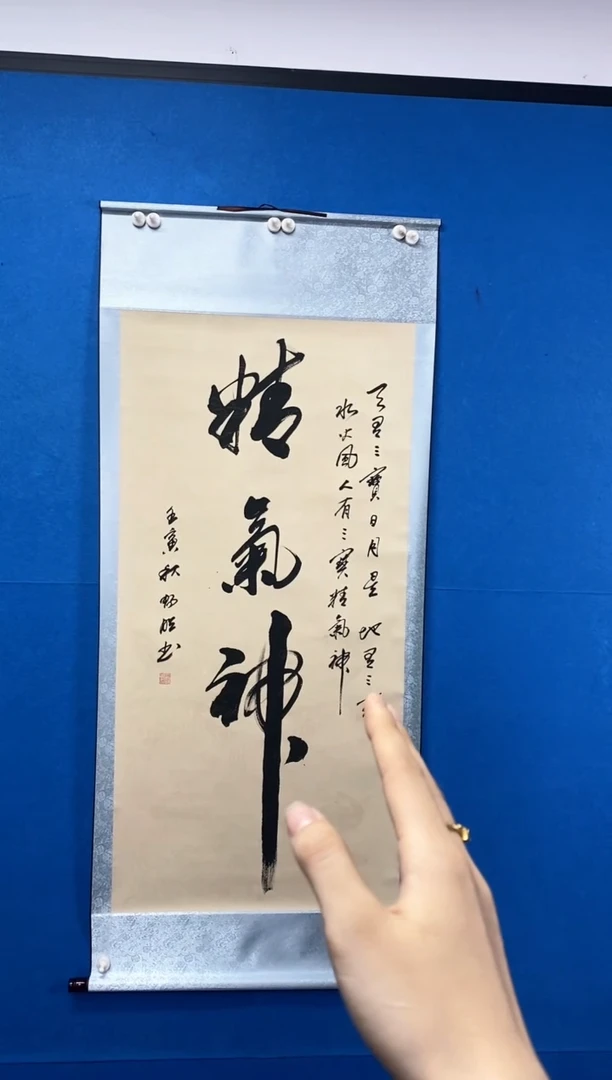 天有三寳日月星地有三
水火風人有三寳精氣神
精氣神
壬寅秋
书